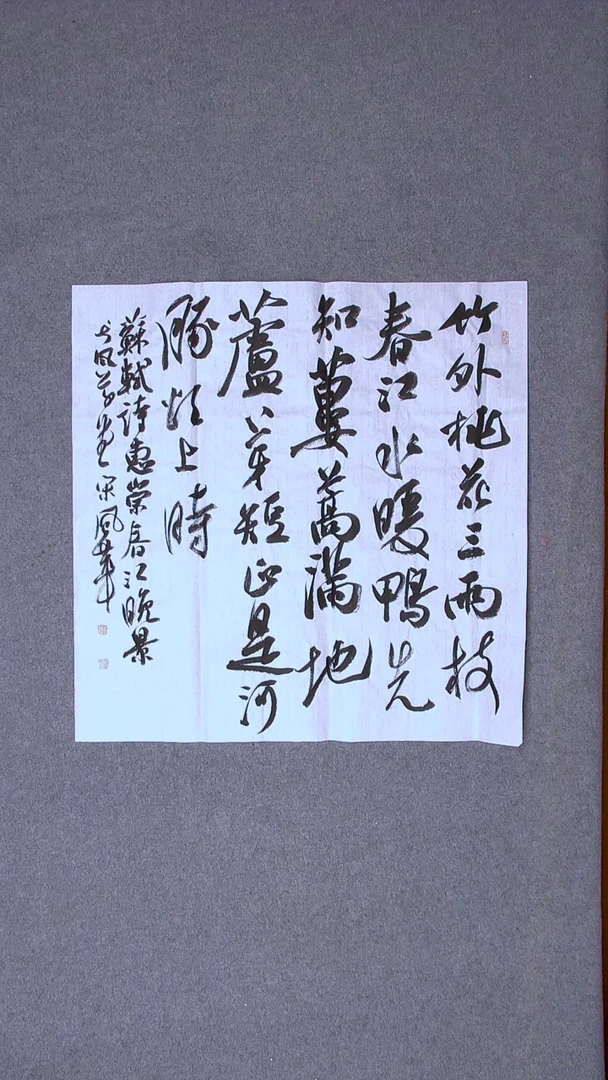 竹外桃花三兩枝
春江水暖鴨先
知蔞蒿滿地
蘆芽短正是河
豚欲上時
蘇軾詩惠崇春江晚景